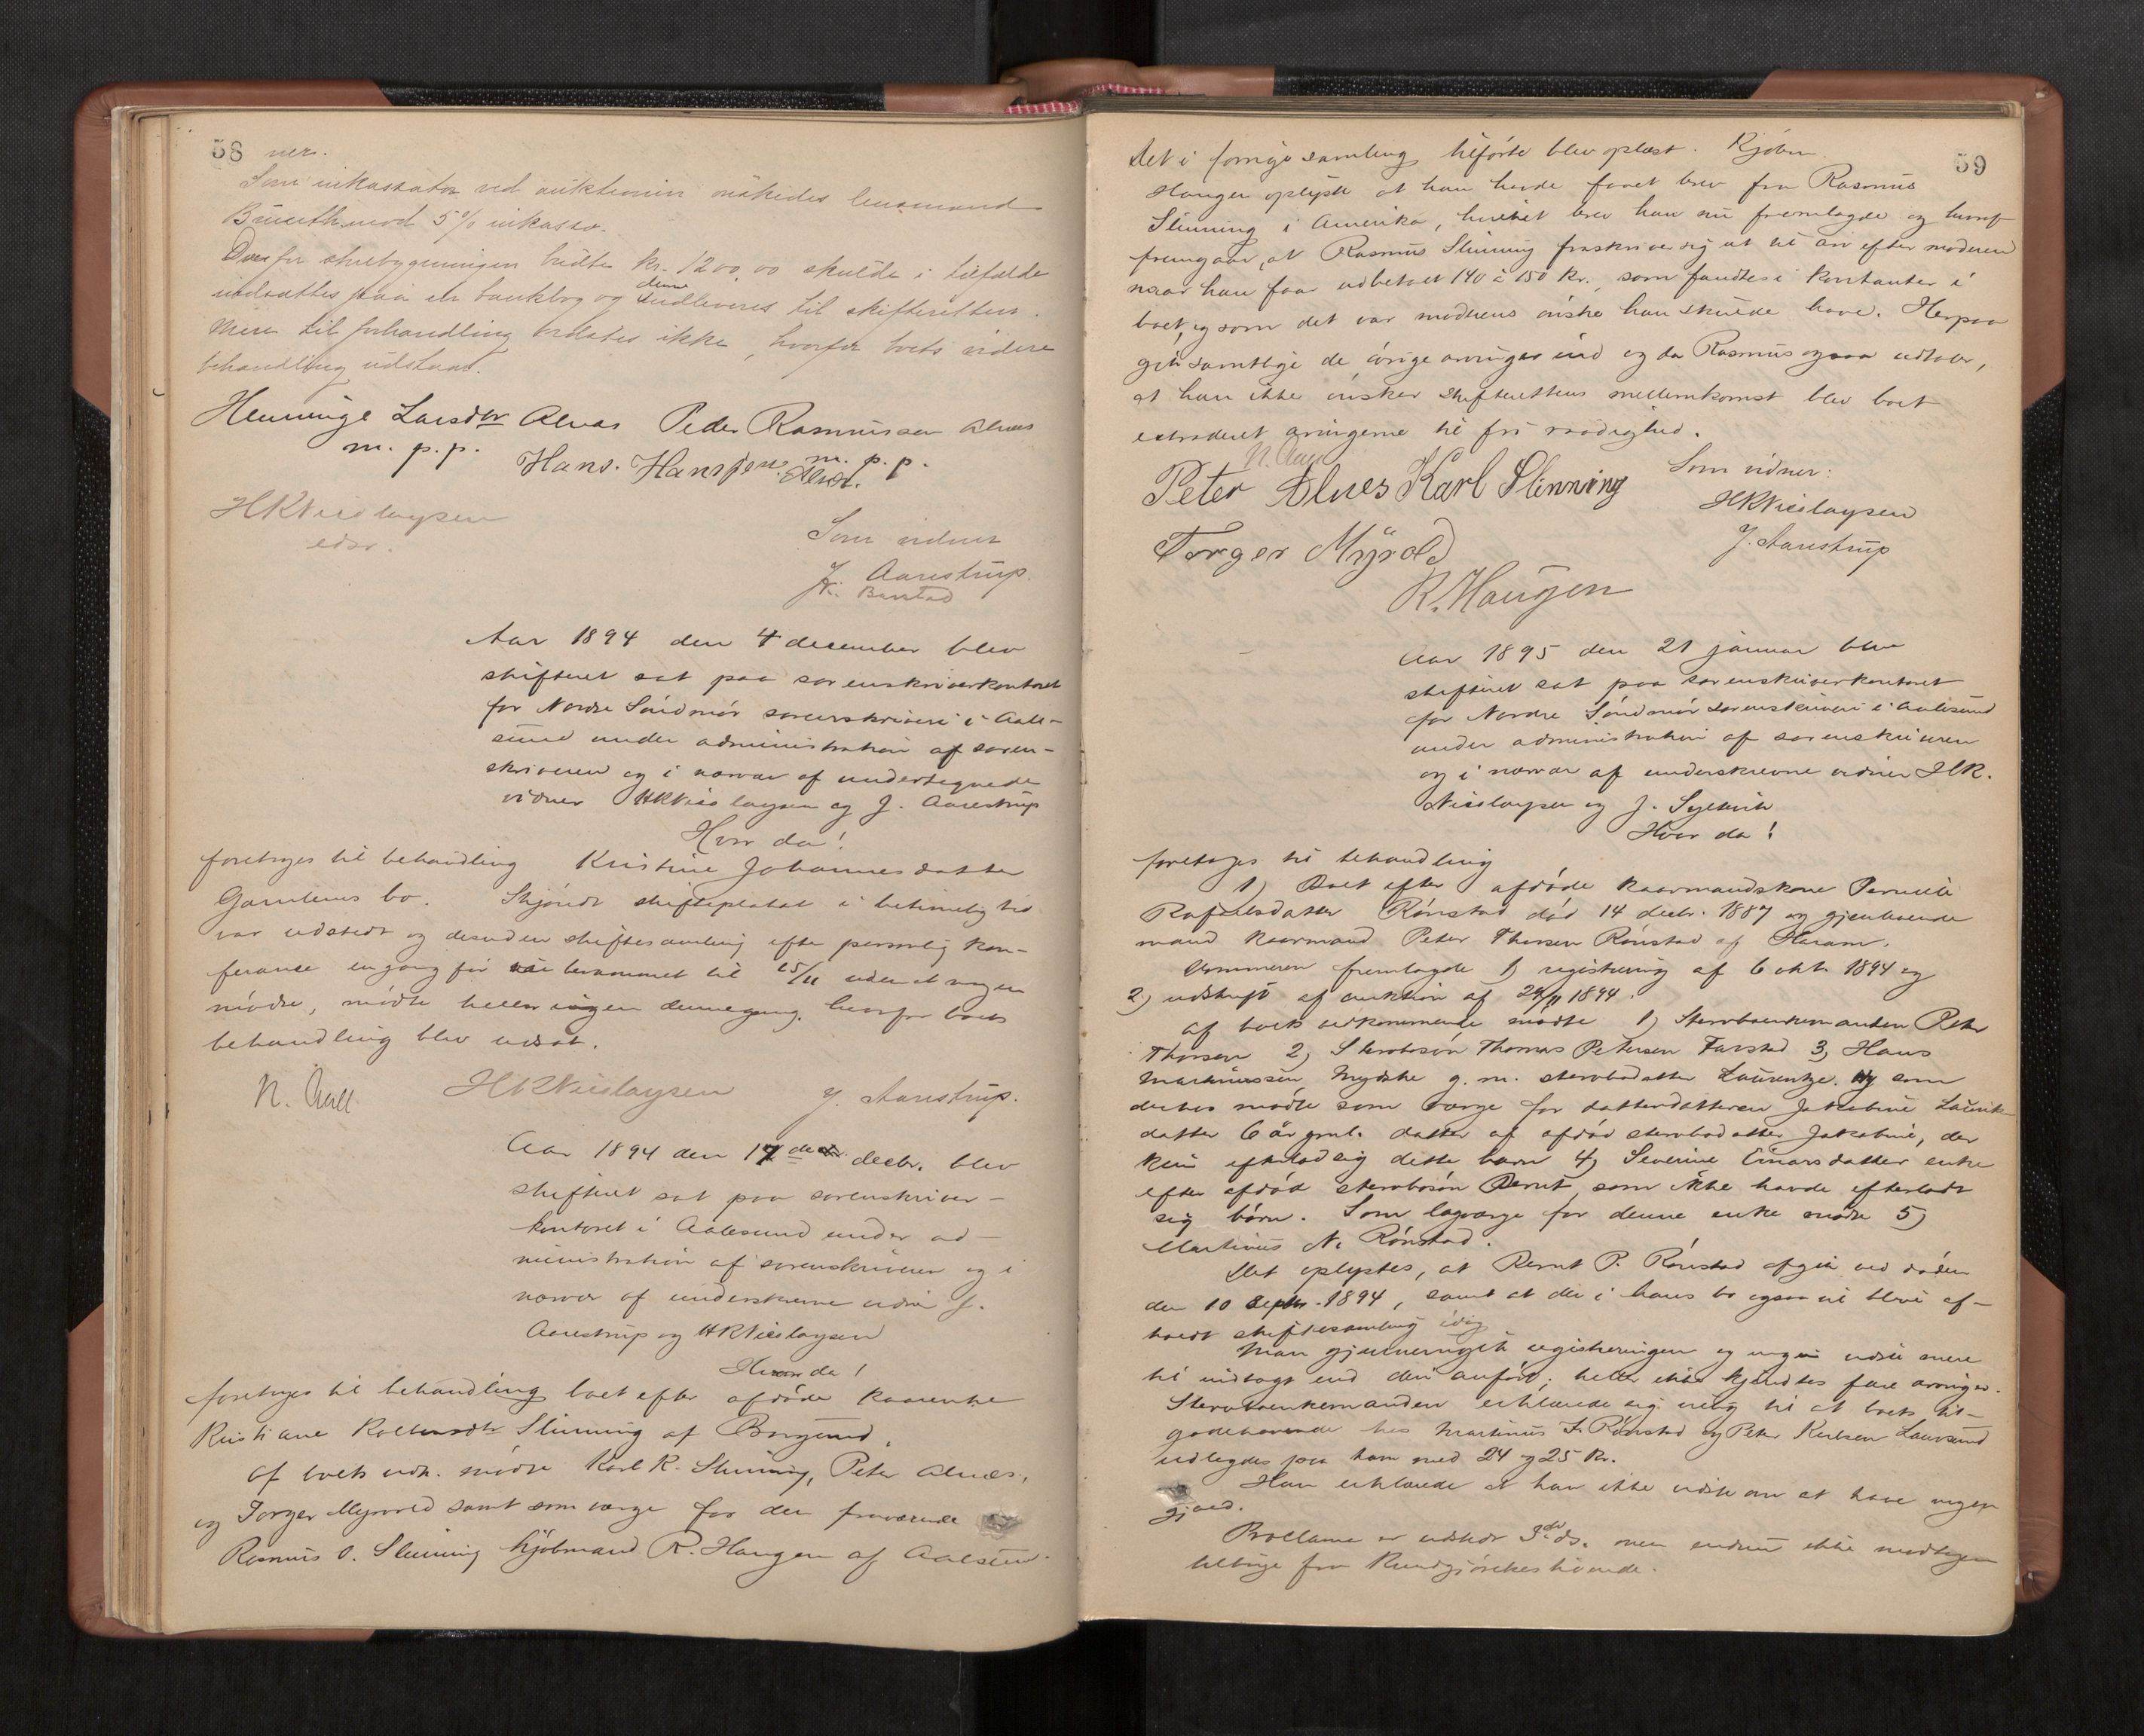 58 ner.
Som inkassator ved auktionen ønskedes lensmand
Buerth mod 5 % inkasso.
De for stuebygningen budte kr. 1200,00 skulde i tilfælde
indsættes paa en bankbog og denne indleveres til skifteretten.
Mere til forhandling ikke, hvorfor boets videre
behandling udstaar.
Henninge Larsdtr Alnæs Peder Rasmussen Alnæs
m. p. p. m. p. p.
Hans. Hansen Alnæs.
HKNicolaysen
edsv.
Som vidner
J. Aarestrup.
Aar 1894 den 4 december blev
skifteret sat paa sorenskriverkontoret
for Nordre Søndmør sorenskriveri i Aale-
sund under administration af soren-
skriveren og i nærvær af undertegnede
vidner HKNicolaysen og J. Aarestrup
Hvor da!
foretoges til behandling Kristine Johannesdatter
Gamlems bo. Skjøndt skifteplakat i betimelig tid
var udstedt og desuden skiftesamling efter personlig kon-
ferance en gang før berammet til 15/11 uden at nogen
mødte, mødte heller ingen dennegang, hvorfor boets
behandling blev udsat.
N. Aall. HKNicolaysen J. Aarestrup.
Aar 1894 den 17 decbr. blev
skifteret sat paa sorenskriver-
kontoret i Aalesund under ad-
ministration af sorenskriveren og i
nærvær af underskrevne vidner J.
Aarestrup og HKNicolaysen
Hvor da!
foretoges til behandling boet efter afdøde kaarenke
Kristiane Slinning af Borgund.
Af boets vedk. mødte Karl R. Slinning, Peter Alnæs,
og Torger Myrvold samt som værge for den fraværende
Rasmus O. Slinning kjøbmand R. Haugen af Aalesund.
59
Det i forrige samling tilførte blev oplæst. Kjøbm.
Haugen oplyste at han havde faaet brev fra Rasmus
Slinning i Amerika, hvilket brev han nu fremlagde og hvoraf
fremgaar, at Rasmus Slinning fraskriver sig al til arv efter moderen
naar han faar udbetalt 140 à 150 kr., som fandtes i kontanter i
boet, og som det var moderens ønske han skulde have. Herpaa
gik samtlige de øvrige arvinger ind og da Rasmus ogsaa udtaler,
at han ikke ønsker skifterettens mellemkomst blev boet
extraderet arvingerne til fri raadighed.
N. Aall
Peter Alnes Karl Slinning
Som vidner:
HKNicolaysen
J. Aarestrup
Torger Myrold
R. Haugen
Aar 1895 den 21 januar blev
skifteret sat paa sorenskriverkontoret
for Nordre Søndmør sorenskriveri i Aalesund
under administration af sorenskriveren
og i nærvær af underskrevne vidner HK.
Nicolaysen og J. Syltevik
Hvor da!
foretoges til behandling
1) Boet efter afdøde kaarmandskone Pernille
Rafaelsdatter Rønstad død 14 decbr. 1887 og gjenlevende
mand kaarmand Peter Thorsen Rønstad af Haram.
Dommeren fremlagde 1) registrering af 6 okt. 1894 og
2) udskrift af auktion af 24/11 1894.
Af boets vedkommende mødte 1) Stervboenkemanden Peter
Thorsen 2) Stervbosøn Thomas Petersen Farstad 3) Hans
Martinussen Myske g. m. stervbodatter Laurentze. og som
derhos mødte som værge for datterdatteren Jakobine Lauriks-
datter 6 år gml. datter af afdød stervbodatter Jakobine, der
kun efterlod sig dette barn 4) Severine Einarsdatter enke
efter afdød stervbosøn Bernt, som ikke havde efterladt
sig børn. Som lagværge for denne enke mødte 5)
Martinus N. Rønstad.
Det oplystes, at Bernt P. Rønstad afgik ved døden
den 10 septbr. 1894, samt at der i hans bo ogsaa vil blive af-
holdt skiftesamling idag
Man gjennemgik registreringen og ingen vidste mere
til indtægt end den anført; heller ikke kjendtes flere arvinger.
Stervboenkemanden erklærede sig villig til at boets til-
godehavende hos Martinus I. Rønstad og Peter Laursund
udlægdes paa ham med 24 og 25 kr.
Han erklærede at han ikke vidste om at have nogen
gjæld.
Proclama er udstedt 3die ds. men endnu ikke modtagen
tilbage fra Kundgjørelsestidende.